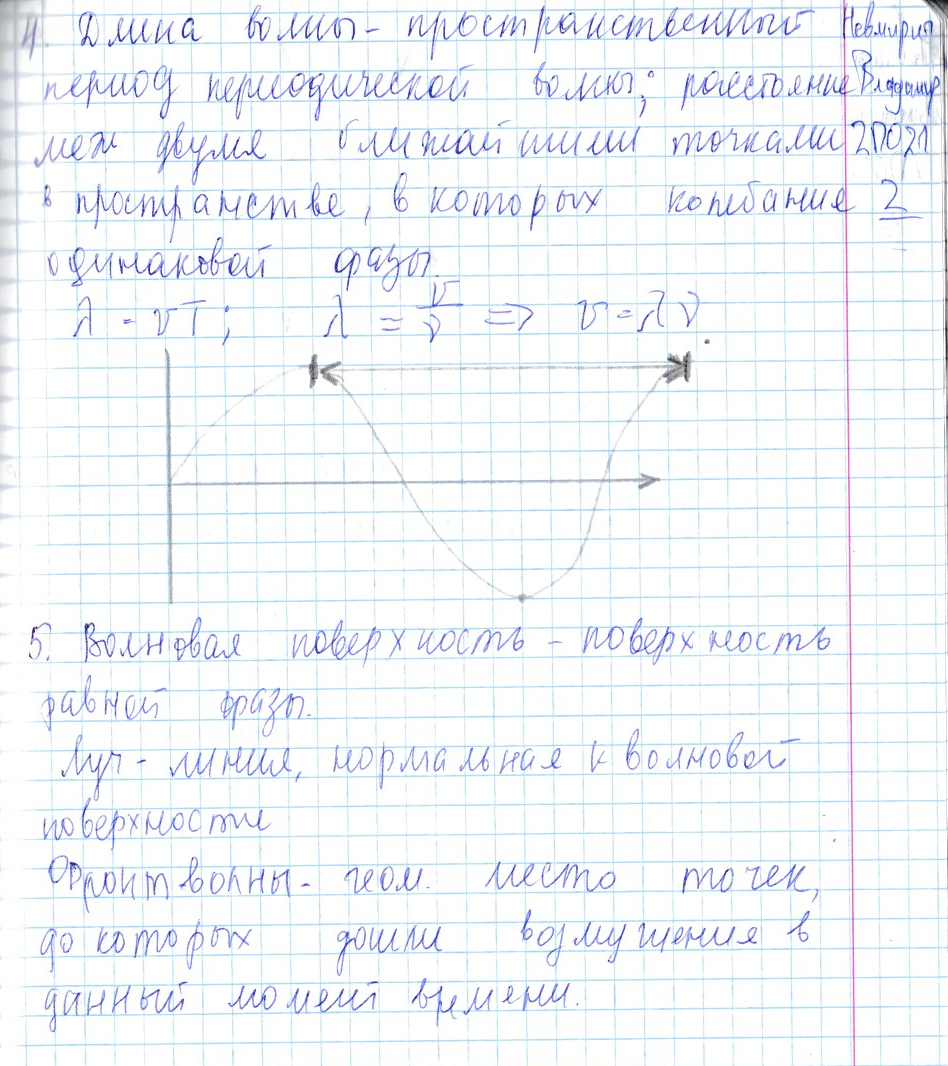 4. Длина волны - пространственный
период периодической волны; расстояние
меж двумя ближайшими точками
в пространстве, в которых колебание
одинаковой фазы.
λ = υT; λ = υ/ν => υ = λν.
Владимир
2П021
2
5. Волновая поверхность - поверхность
равной фазы.
Луч - линия, нормальная к волновой
поверхности
Фронт волны - геом. место точек,
до которых дошли возмущения в
данный момент времени.